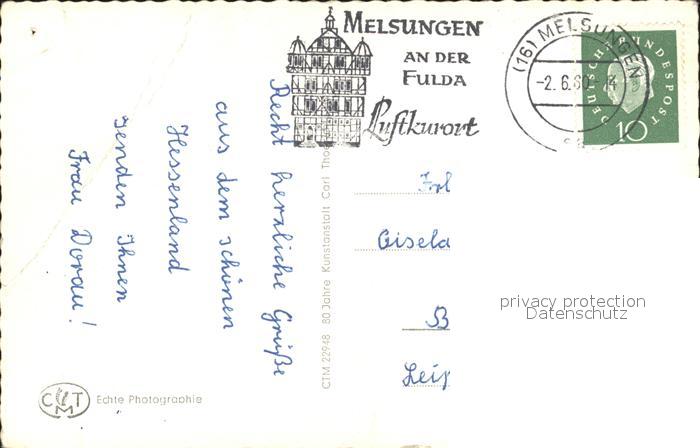 MELSUNGEN
AN DER
FULDA
Luftkurort
(16) MELSUNGEN
-2.6.60
DEUTSCHE BUNDESPOST
10
Recht herzliche Grüße
aus dem schönen
Hessenland
senden Ihnen
Frau Dorau!
CTM 22948 80 Jahre Kunstanstalt Carl
Frl
Gisela
B
Leip
privacy protection
Datenschutz
CTM
Echte Photographie